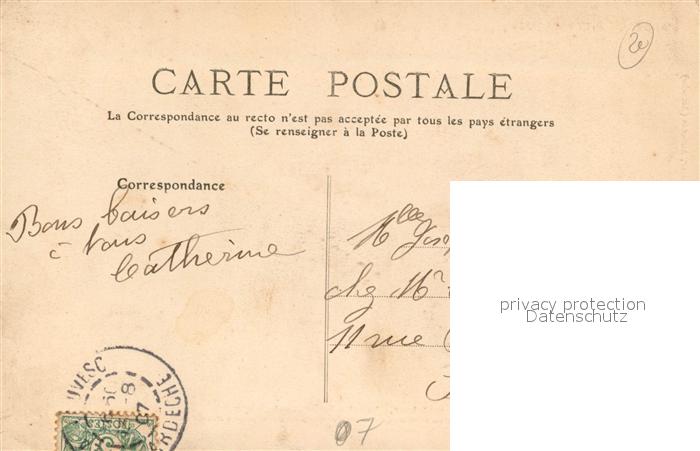 CARTE POSTALE
La Correspondance au recto n'est pas acceptée par tous les pays étrangers
(Se renseigner à la Poste)
Correspondance
Bons baisers
à tous
Catherine
Mlle
chez Mr
11 rue
privacy protection
Datenschutz
ARDECHE
07